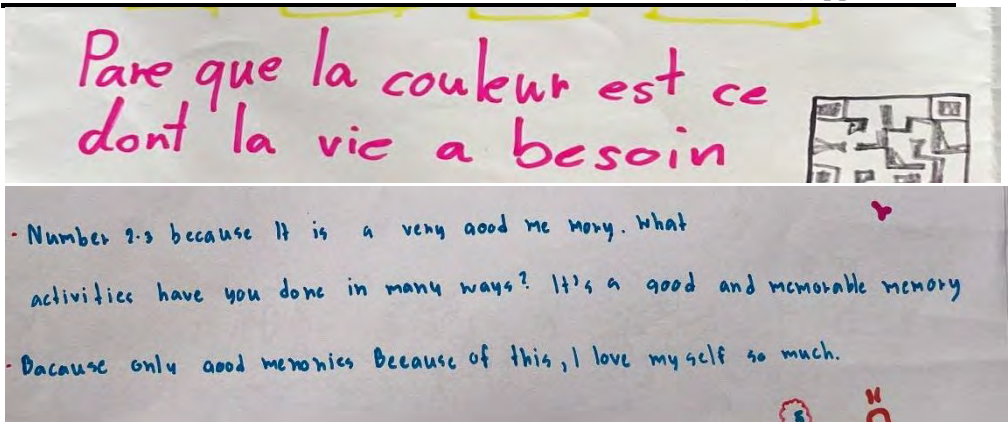 Pare que la couleur est ce
dont la vie a besoin
- Number 2.3 because It is a very aood me mory. What
activities have you done in many ways? It's a good and memorable memory
- Bacause only aood memories Because of this, I love my self so much.